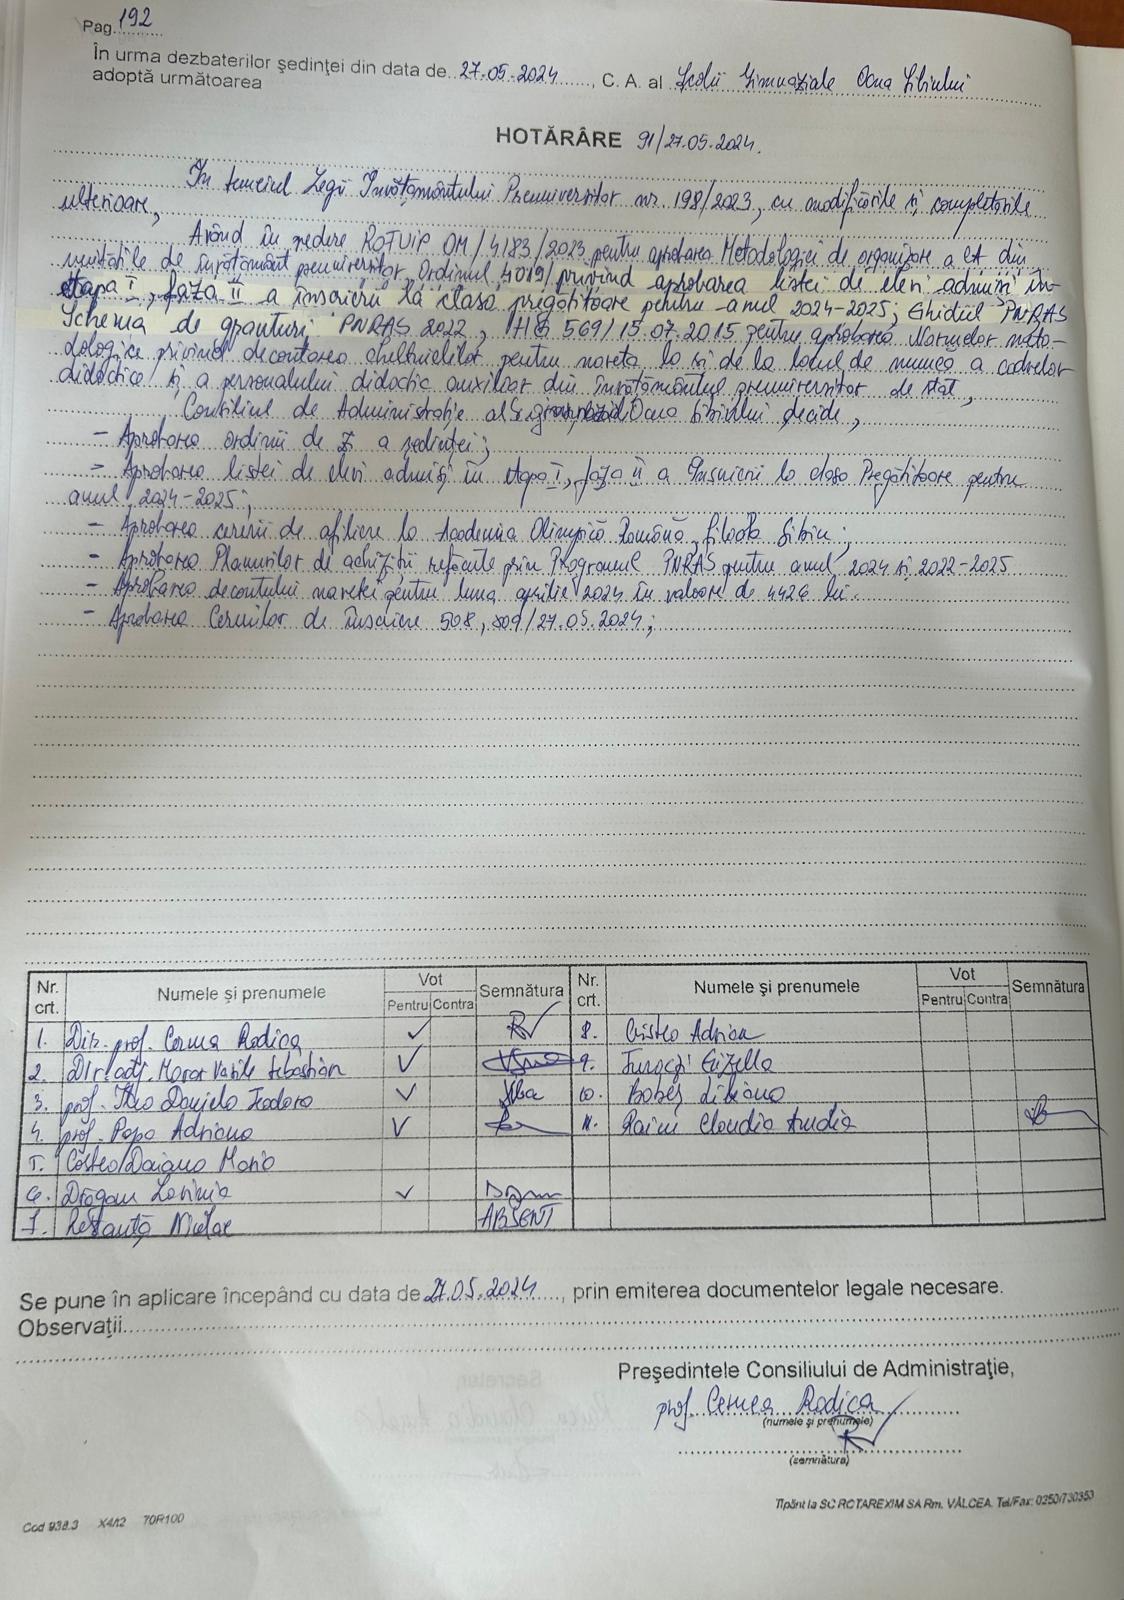 Pag. 192
În urma dezbaterilor şedinţei din data de 27.05.2024, C. A. al Şcolii Gimnaziale Ocna Sibiului
adoptă următoarea
HOTĂRÂRE 91/27.05.2024.
În temeiul Legii Învăţământului Preuniversitar nr. 198/2023, cu modificările şi completările
ulterioare,
Având în vedere ROFUIP OM/4183/2023 pentru aprobarea Metodologiei de organizare a CA din
unităţile de învăţământ preuniversitar, Ordinul 4019/privind aprobarea listei de elevi admişi în
etapa I, faza II a înscrierii la clasa pregătitoare pentru anul 2024-2025; Ghidul PNRAS
Schema de granturi PNRAS 2022, HG 569/15.07.2015 pentru aprobarea Normelor meto-
dologice privind decontarea cheltuielilor pentru naveta la şi de la locul de munca a cadrelor
didactice şi a personalului didactic auxiliar din învăţământul preuniversitar de stat,
Consiliul de Administraţie al Ocna Sibiului decide,
- Aprobarea ordinii de zi a şedinţei;
- Aprobarea listei de elevi admişi în etapa I, faza II a înscrierii la clasa Pregătitoare pentru
anul 2024-2025;
- Aprobarea cererii de afiliere la Academia Olimpică Română, filiala Sibiu;
- Aprobarea Planurilor de achiziţii refăcute prin Programul PNRAS pentru anul 2024 şi 2022-2025
- Aprobarea decontului navetei pentru luna aprilie 2024 în valoare de 4426 lei.
- Aprobarea Cererilor de înscriere 508, 509/27.05.2024;
Nr. crt. Numele şi prenumele Vot Pentru Contra Semnătura Nr. crt. Numele şi prenumele Vot Pentru Contra Semnătura
1. Dir. prof. Cernea Rodica 8. Cristea Adrian
2. Dir. adj. Morar Vasile Sebastian 9.
3. prof. Daniela Teodora 10. Bobeş Liliana
4. prof. Popa Adriana 11. Claudia
5. Costea Daiana Maria
6. Drăgan Lavinia
7. Nicolae ABSENT
Se pune în aplicare începând cu data de 27.05.2024, prin emiterea documentelor legale necesare.
Observaţii
Preşedintele Consiliului de Administraţie,
prof. Cernea Rodica
(numele şi prenumele)
(semnătura)
Tipărit la SC ROTAREXIM SA Rm. VÂLCEA. Tel/Fax: 0250/730353
Cod 938.3 X4/t2 70R100